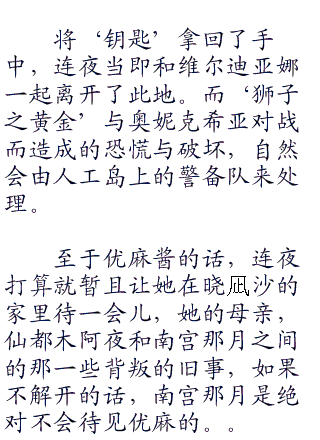 将‘钥匙’拿回了手
中，连夜当即和维尔迪亚娜
一起离开了此地。而‘狮子
之黄金’与奥妮克希亚对战
而造成的恐慌与破坏，自然
会由人工岛上的警备队来处
理。
至于优麻酱的话，连夜
打算就暂且让她在晓凪沙的
家里待一会儿，她的母亲，
仙都木阿夜和南宫那月之间
的那一些背叛的旧事，如果
不解开的话，南宫那月是绝
对不会待见优麻的。。